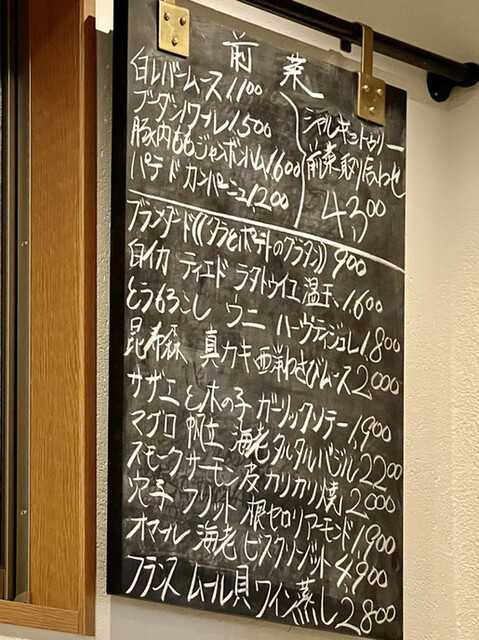 前菜
白レバームース 1,100
ブーダンノワール 1,500
豚内ももジャンボンハム 1,600
パテドカンパーニュ 1,200
シャルキュトゥリー
前菜取り合わせ
4,300
ブランダード((タラとポテトのグラタン)) 900
白イカ ティエド ラタトゥイユ 温玉、1,600
とうもろこし ウニ ハーヴティジュレ 1,800
昆布森 真カキ 西洋わさびムース 2,000
サザエ と木の子 ガーリックソテー 1,900
マグロ 帆立 海老 タルタル バジル 2,200
スモークサーモン 皮カリカリ焼 2,000
穴子 フリット 根セロリアーモンド 1,900
オマール 海老 ビスクリゾット 4,900
フランス ムール貝 ワイン蒸し 2,800